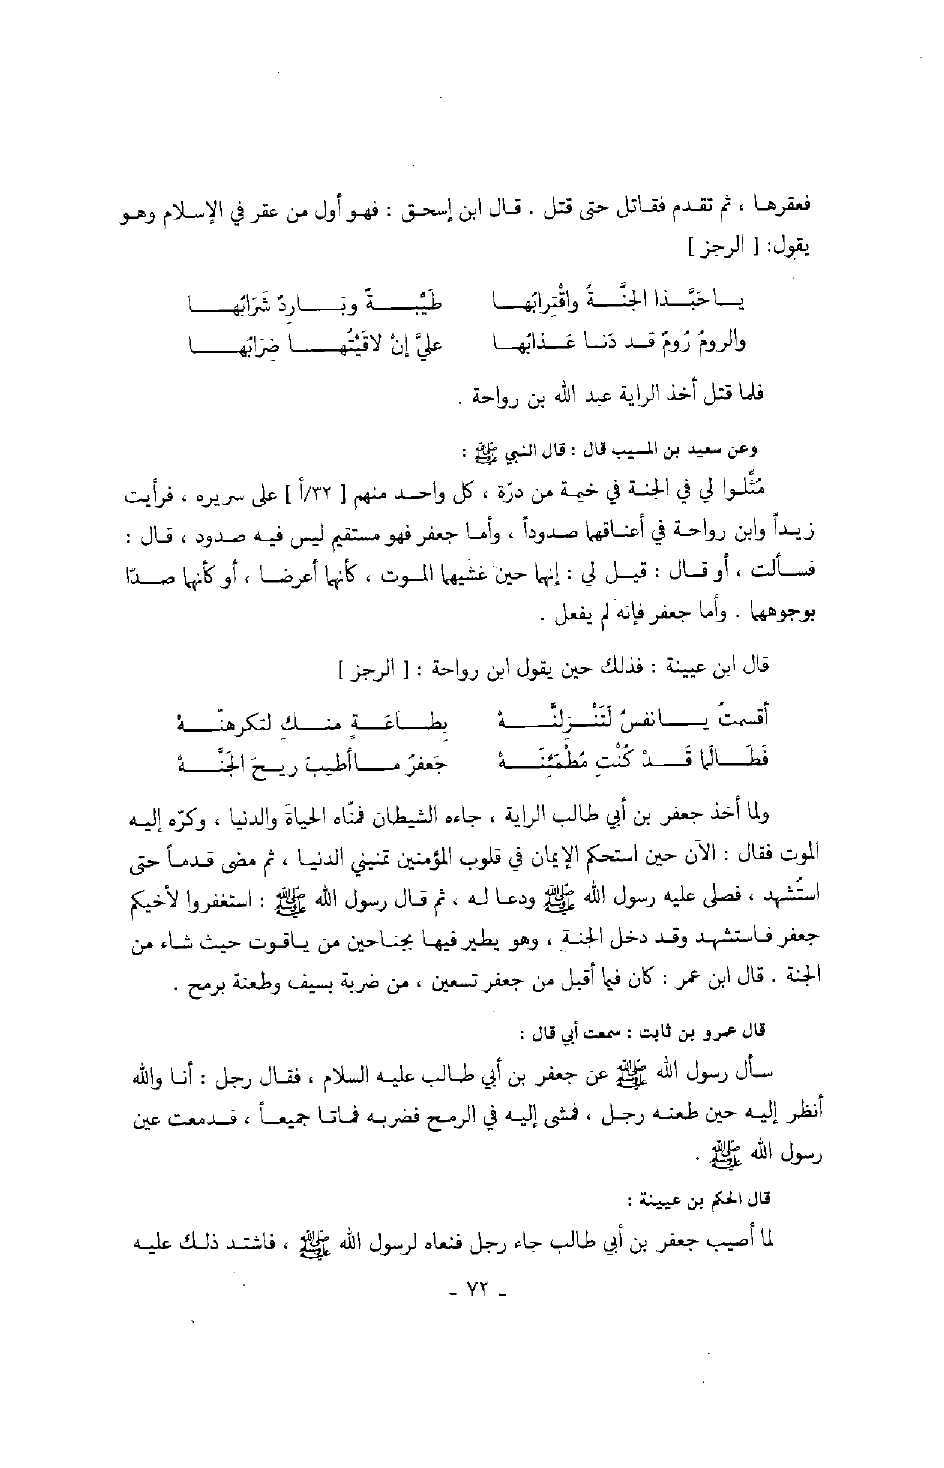 فعقرها ، ثم تقدم فقاتل حتى قتل . قال ابن إسحق : فهو أول من عقر في الإسلام وهو
يقول: [ الرجز ]
يا حَبَّذا الجنَّةُ واقْتِرابُها طَيِّبةً وبَارِدٌ شَرَابُها
والرومُ رُومٌ قد دَنا عَذابُها عليَّ إنْ لاقَيْتُها ضِرَابُها
فلما قتل أخذ الراية عبد الله بن رواحة .
وعن سعيد بن المسيب قال : قال النبي ﷺ :
مُثِّلوا لي في الجنة في خيمة من درّة ، كل واحد منهم [ ٣٢/أ ] على سريره ، فرأيت
زيداً وابن رواحة في أعناقها صدوداً ، وأما جعفر فهو مستقيم ليس فيه صدود ، قال :
فسألت ، أو قال : قيل لي : إنها حين غشيها الموت ، كأنها أعرضا ، أو كأنها صدّا
بوجوهها . وأما جعفر فإنه لم يفعل .
قال ابن عيينة : فذلك حين يقول ابن رواحة : [ الرجز ]
أقسمتُ يا نفسُ لَتَنْزِلنَّهْ بطاعَةٍ منك لتكرهِنَّهْ
فَطَالما قَدْ كُنْتِ مُطْمَئِنَّهْ جَعفرُ ما أطيبَ ريحَ الجنَّهْ
ولما أخذ جعفر بن أبي طالب الراية ، جاءه الشيطان فمنّاه الحياة والدنيا ، وكرّه إليه
الموت فقال : الآن حين استحكم الإيمان في قلوب المؤمنين تمنيني الدنيا ، ثم مضى قدماً حتى
استُشهد ، فصلى عليه رسول الله ﷺ ودعا له ، ثم قال رسول الله ﷺ : استغفروا لأخيكم
جعفر فاستشهد وقد دخل الجنة ، وهو يطير فيها بجناحين من ياقوت حيث شاء من
الجنة . قال ابن عمر : كان فيما أقبل من جعفر تسعين ، من ضربة بسيف وطعنة برمح .
قال عمرو بن ثابت : سمعت أبي قال :
سأل رسول الله ﷺ عن جعفر بن أبي طالب عليه السلام ، فقال رجل : أنا والله
أنظر إليه حين طعنه رجل ، فمشى إليه في الرمح فضربه فماتا جميعاً ، فدمعت عين
رسول الله ﷺ .
قال الحكم بن عيينة :
لما أصيب جعفر بن أبي طالب جاء رجل فنعاه لرسول الله ﷺ ، فاشتد ذلك عليه
- ٧٢ -